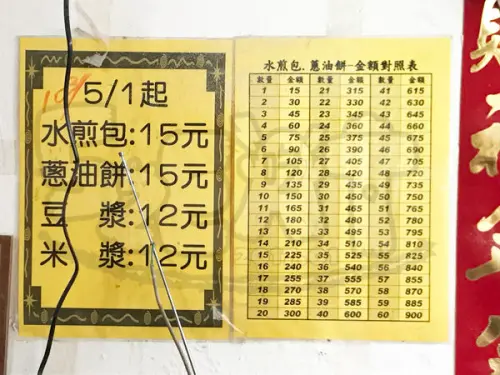 104
5/1起
水煎包:15元
蔥油餅:15元
豆 漿:12元
米 漿:12元
水煎包.蔥油餅-金額對照表
數量 金額 數量 金額 數量 金額
1 15 21 315 41 615
2 30 22 330 42 630
3 45 23 345 43 645
4 60 24 360 44 660
5 75 25 375 45 675
6 90 26 390 46 690
7 105 27 405 47 705
8 120 28 420 48 720
9 135 29 435 49 735
10 150 30 450 50 750
11 165 31 465 51 765
12 180 32 480 52 780
13 195 33 495 53 795
14 210 34 510 54 810
15 225 35 525 55 825
16 240 36 540 56 840
17 255 37 555 57 855
18 270 38 570 58 870
19 285 39 585 59 885
20 300 40 600 60 900